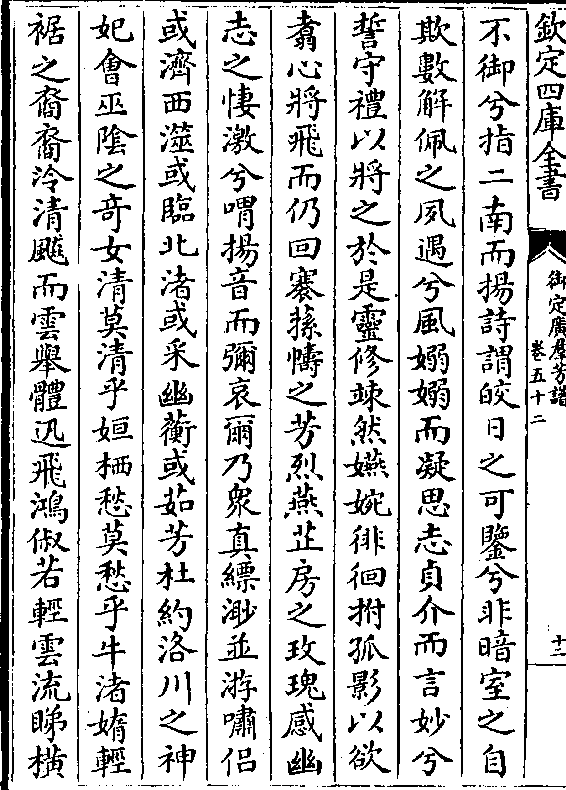 欽定四庫全書
御定廣羣芳譜
卷五十二
十二
不御兮指二南而揚詩謂皎日之可鑒兮非暗室之自
欺數解佩之夙遇兮風嫋嫋而凝思志貞介而言妙兮
誓守禮以將之於是靈修竦然嬿婉徘徊拊孤影以欲
翥心將飛而仍回搴蓀幬之芳烈燕茝房之玫瑰感幽
志之悽激兮喟揚音而彌哀爾乃衆真縹渺並游嘯侣
或濟西澨或臨北渚或采幽蘅或茹芳杜約洛川之神
妃會巫陰之奇女清莫清乎姮栖愁莫愁乎牛渚媠輕
裾之裔裔泠清飈而雲舉體迅飛鴻俶若輕雲流睇橫